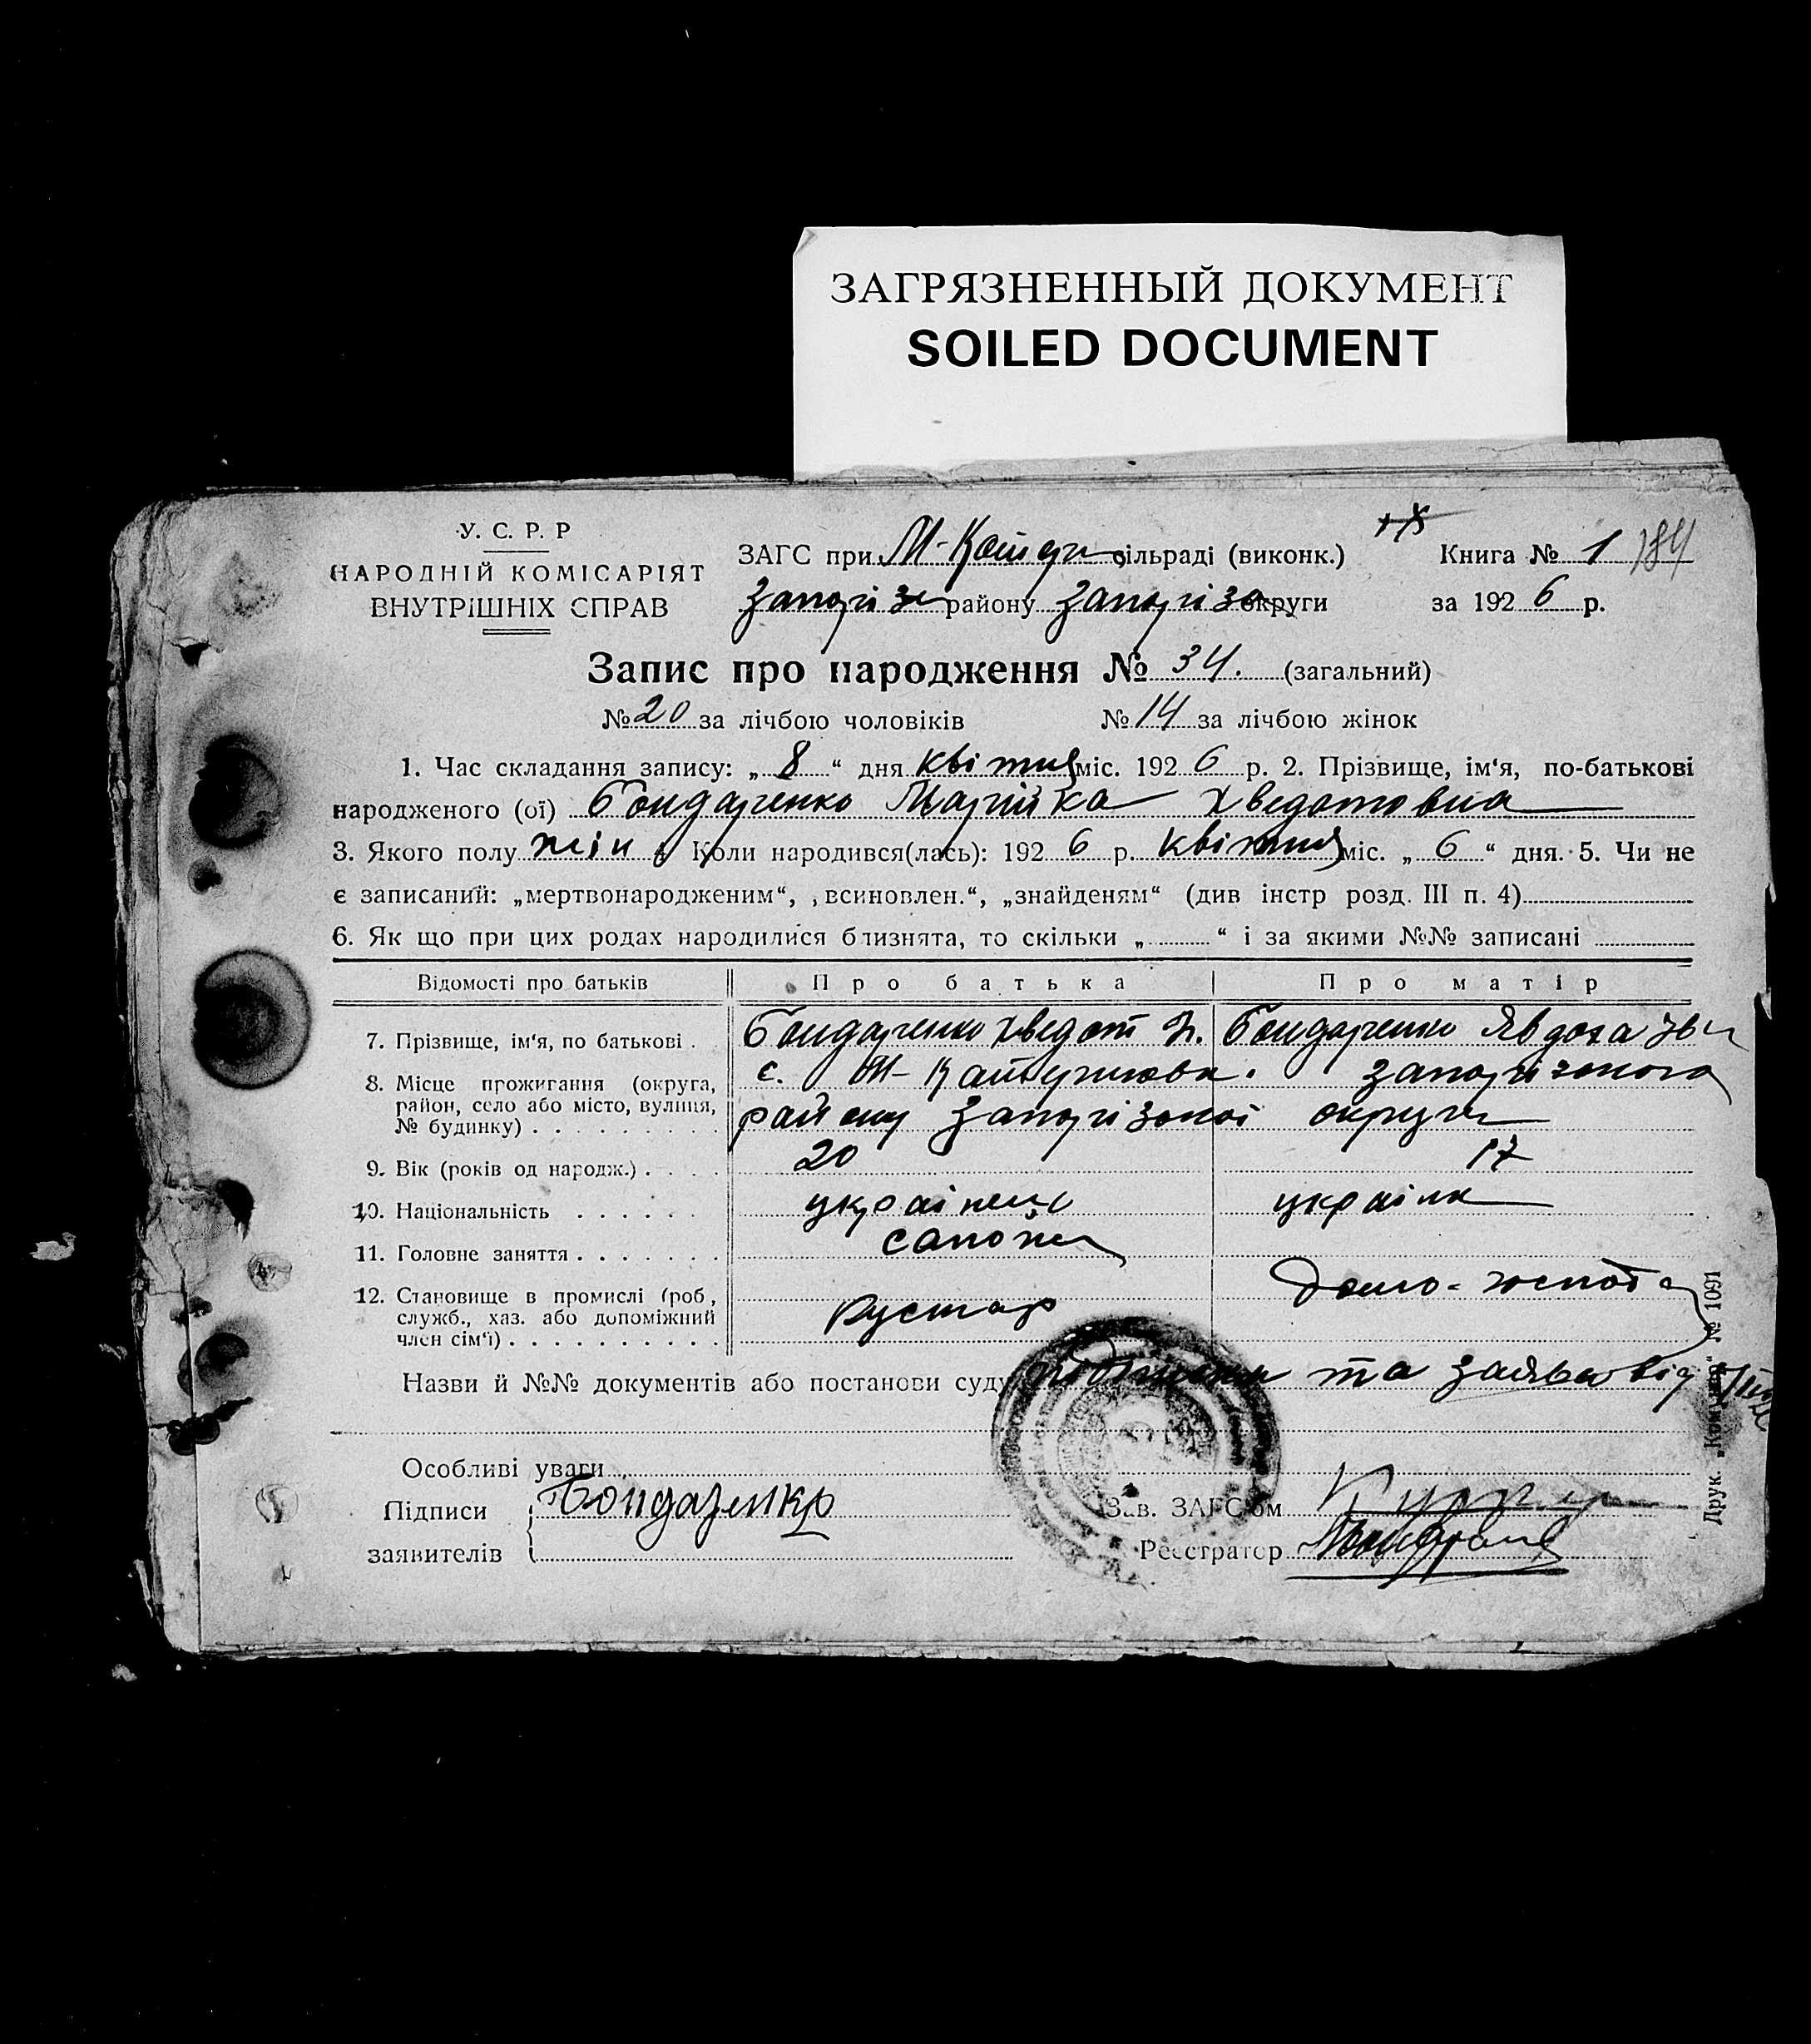 ЗАГРЯЗНЕННЫЙ ДОКУМЕНТ
SOILED DOCUMENT
У. С. Р. Р
НАРОДНІЙ КОМІСАРІЯТ
ВНУТРІШНІХ СПРАВ
ЗАГС при М-Кайду сільраді (виконк.)
Книга № 1 184
Запоріз району Запоріз округи
за 1926 р.
Запис про народження № 34. (загальний)
№ 20 за лічбою чоловіків № 14 за лічбою жінок
1. Час складання запису: „ 8 “ дня квітня міс. 1926 р. 2. Прізвище, ім‘я, по-батькові
народженого (ої) Бондаренко Марійка Хведотовна
3. Якого полу жін 4. Коли народився(лась): 1926 р. квітня міс. „ 6 “ дня. 5. Чи не
є записаний: „мертвонародженим“, „всиновлен.“, „знайденям“ (див інстр розд. III п. 4)
6. Як що при цих родах народилися близнята, то скільки „ “ і за якими №№ записані
Відомості про батьків Про батька Про матір
7. Прізвище, ім‘я, по батькові . Бондаренко Хведот Бондаренко Явдоха
8. Місце прожигання (округа, район, село або місто, вулиця, № будинку) с. М- Кайдушова. Запорізького
району Запорізької округи
9. Вік (років од народж.) 20 17
10. Національність українец українка
11. Головне заняття сапожн
12. Становище в промислі (роб, служб., хаз. або допоміжний член сім‘ї) Кустар Домо-господа
Назви й №№ документів або постанови суду та заява від
Особливі уваги
Підписи заявителів Бондаренко
Зав. ЗАГС‘ом
Реєстратор
Друк. „Комунар“ № 1091